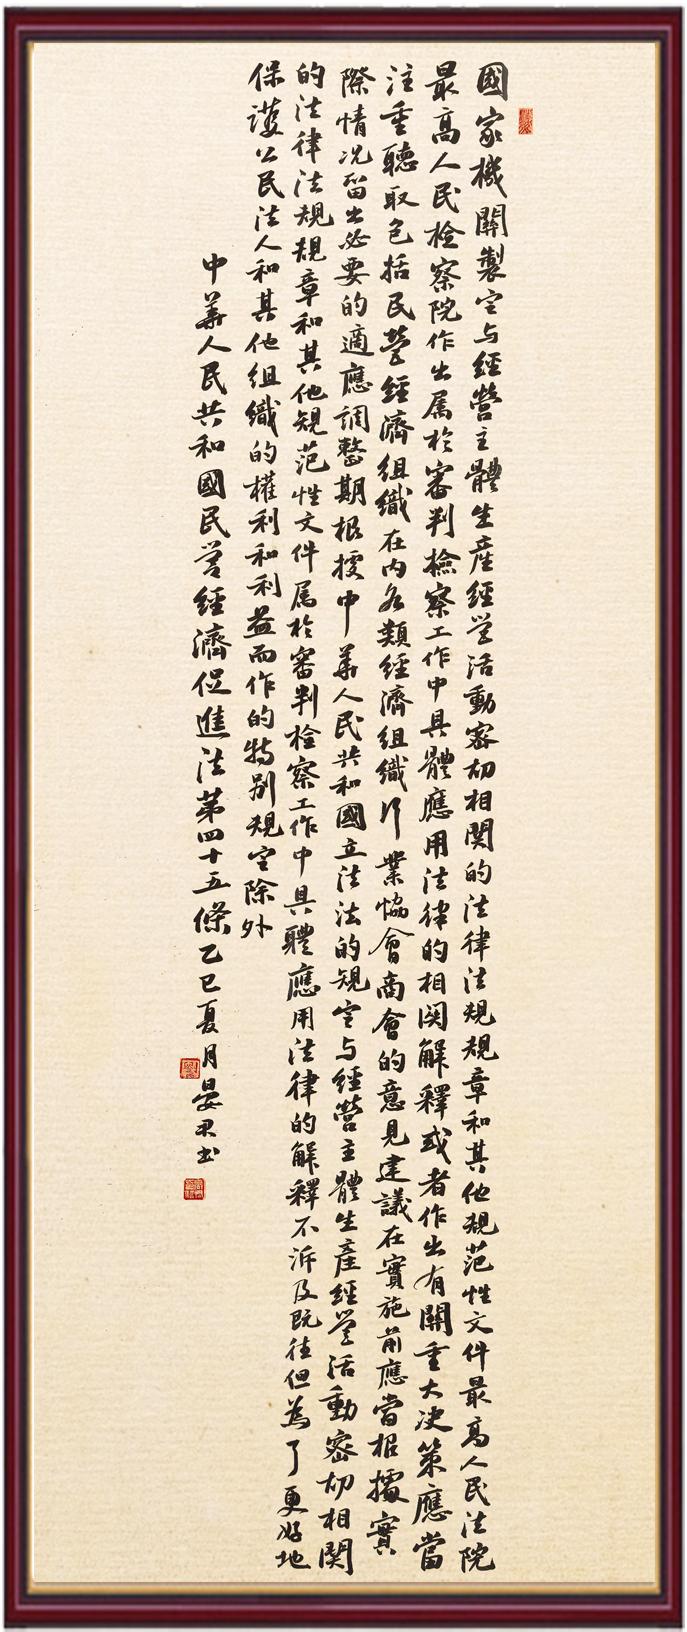 國家機關製定与經營主體生産經營活動密切相関的法律法規規章和其他規范性文件最高人民法院
最高人民检察院作出属於審判檢察工作中具體應用法律的相関解釋或者作出有關重大决策應當
注重聽取包括民營經濟組織在内各類經濟組織行業協會商會的意見建議在實施前應當根據實
際情况留出必要的適應調整期根据中華人民共和國立法法的規定与經營主體生產經營活動密切相関
的法律法規規章和其他規范性文件属於審判检察工作中具體應用法律的解釋不泝及既往但為了更好地
保護公民法人和其他組織的權利和利益而作的特别規定除外
中華人民共和國民营經濟促進法第四十五條乙巳夏月晏君书